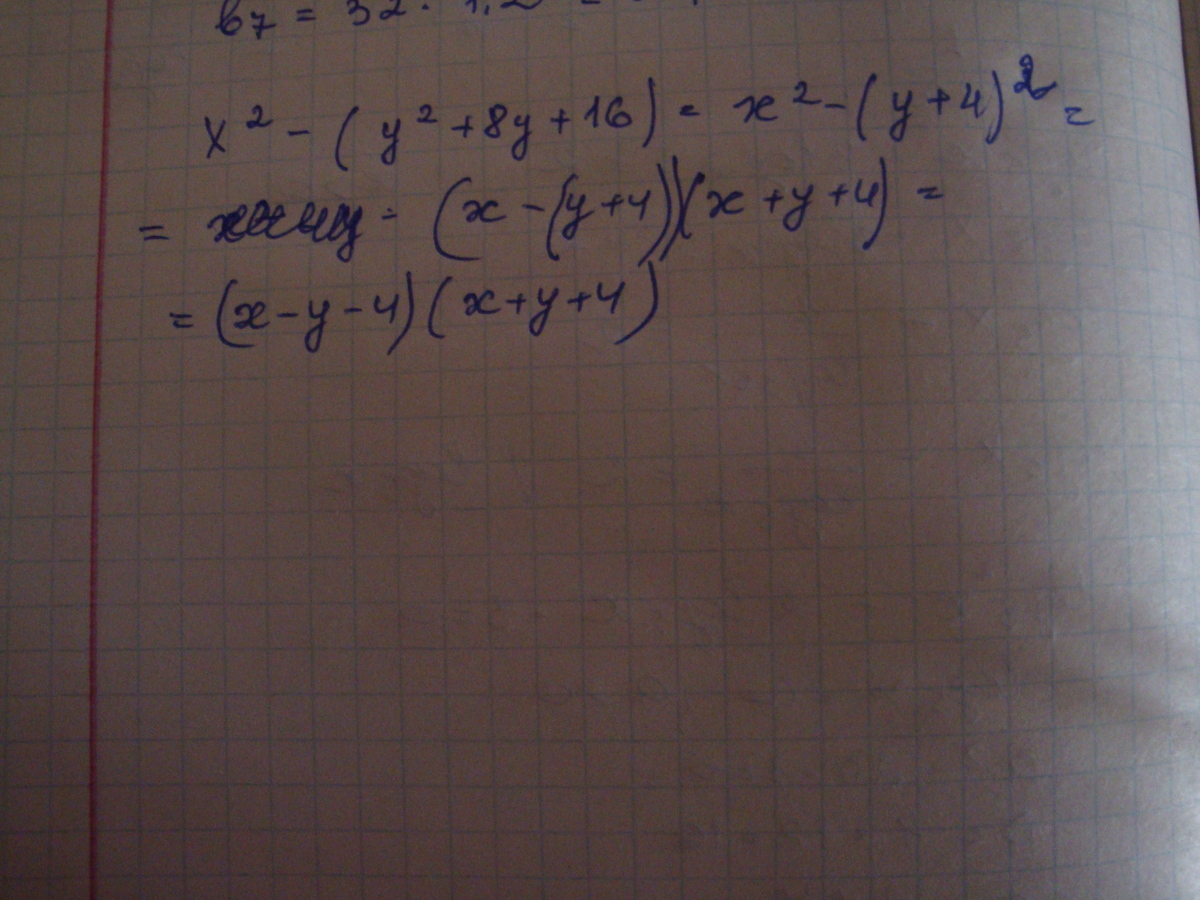 b7 = 32 · 1,2
x² - ( y² + 8y + 16 ) = x² - ( y + 4 )² =
= (x - (y + 4))(x + y + 4) =
= (x - y - 4) (x + y + 4)